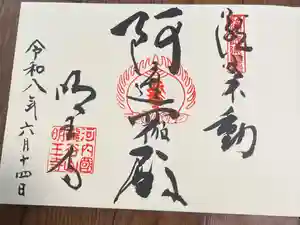 瀧谷不動
阿遮羅殿
明王寺
河内國
明王寺
令和八年六月十四日